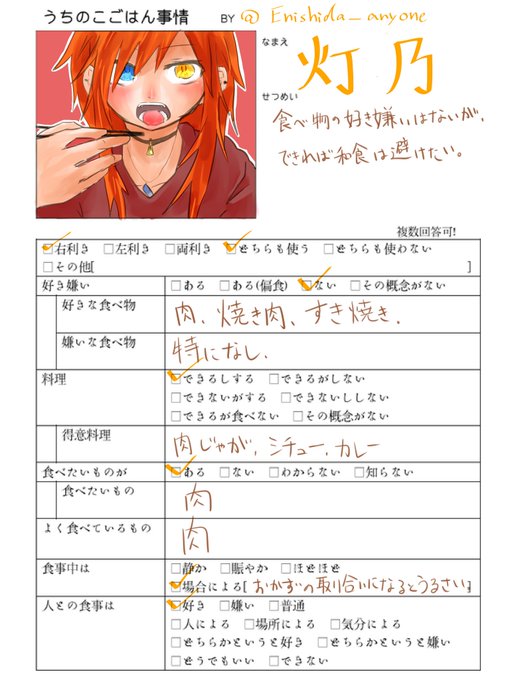 うちのこごはん事情 BY @Enishida_anyone
なまえ
灯乃
せつめい
食べ物の好き嫌いはないが、
できれば和食は避けたい。
複数回答可!
□右利き □左利き □両利き □どちらも使う □どちらも使わない
□その他[ ]
好き嫌い □ある □ある(偏食) □ない □その概念がない
好きな食べ物 肉、焼き肉、すき焼き.
嫌いな食べ物 特になし.
料理 □できるしする □できるがしない
□できないがする □できないししない
□できるが食べない □その概念がない
得意料理 肉じゃが、シチュー、カレー
食べたいものが □ある □ない □わからない □知らない
食べたいもの 肉
よく食べているもの 肉
食事中は □静か □賑やか □ほどほど
□場合による[おかずの取り合いになるとうるさい]
人との食事は □好き □嫌い □普通
□人による □場所による □気分による
□どちらかというと好き □どちらかというと嫌い
□どうでもいい □できない